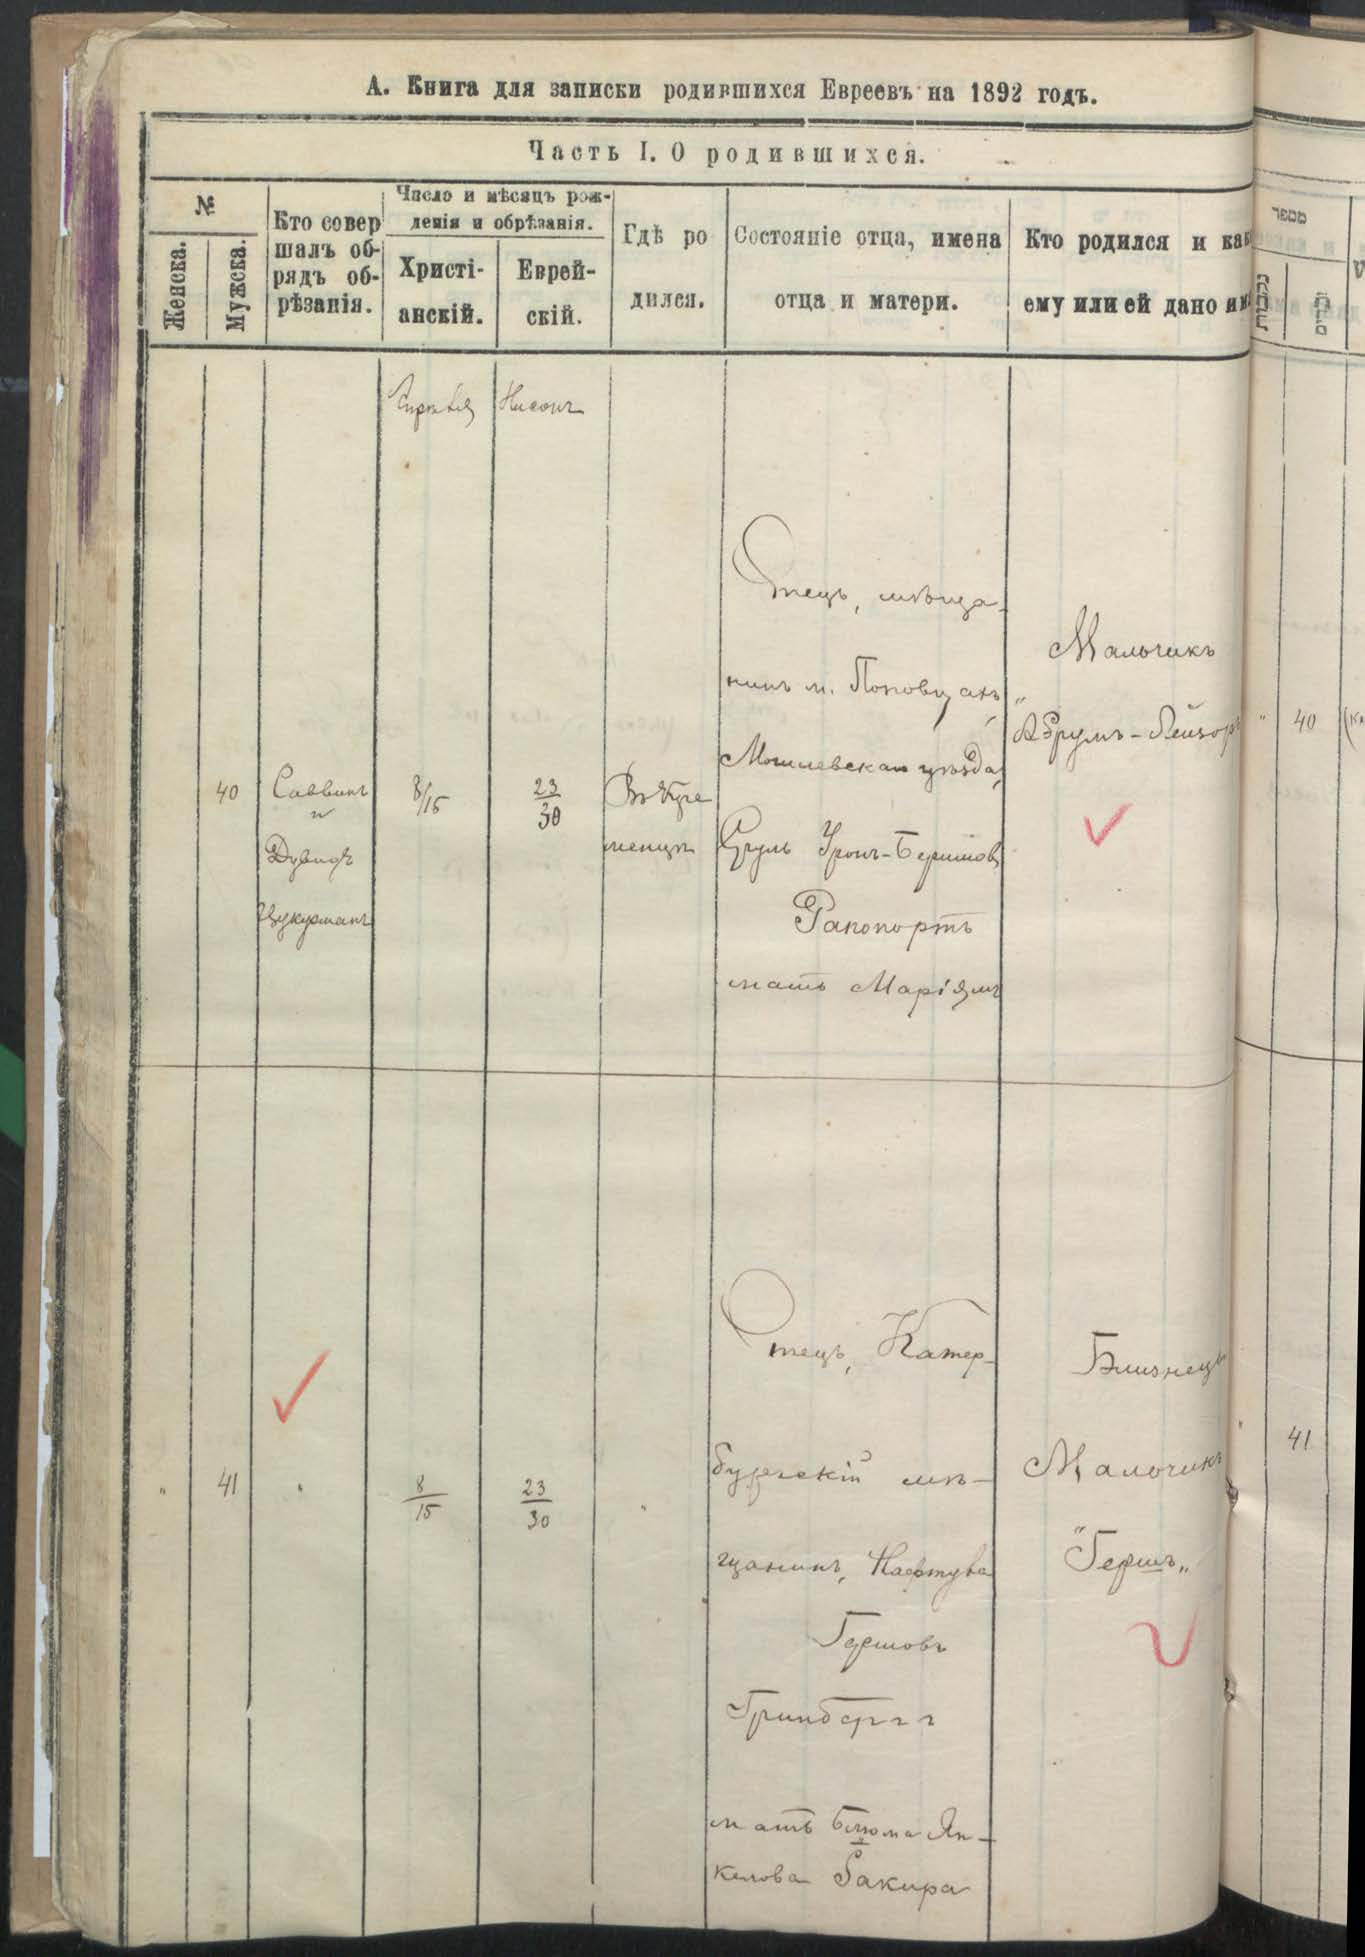 А. Книга для записки родившихся Евреевъ на 1892 годъ.
Часть I. О родившихся.
№
Женска.
Мужска.
Кто совер
шалъ об-
рядъ об-
рѣзанія.
Число и мѣсяцъ рож-
денія и обрѣзанія.
Христі-
анскій.
Еврей-
скій.
Гдѣ ро
дился.
Состояніе отца, имена
отца и матери.
Кто родился и как
ему или ей дано им
מספר
נקבות
זכרים
Апрѣля
Нисонъ
40
Саввинъ
и
Дувидъ
Цукурманъ
8/15
23
30
Въ Кре
менцѣ
Отецъ, мѣща-
нинъ м. Поповцахъ,
Могилевскаго уѣзда,
Сруль Уронъ-Беришовъ
Рапопортъ
мать Маріямъ
Мальчикъ
"Абрумъ-Лейзоръ
" 40
" 41 "
8
15
23
30
"
Отецъ, Катер-
бургскій мѣ-
щанинъ, Нафтула
Гершовъ
Гринбергъ
мать Блюма Ян-
келова Бакира
Близнецъ
Мальчикъ
"Гершъ"
" 41